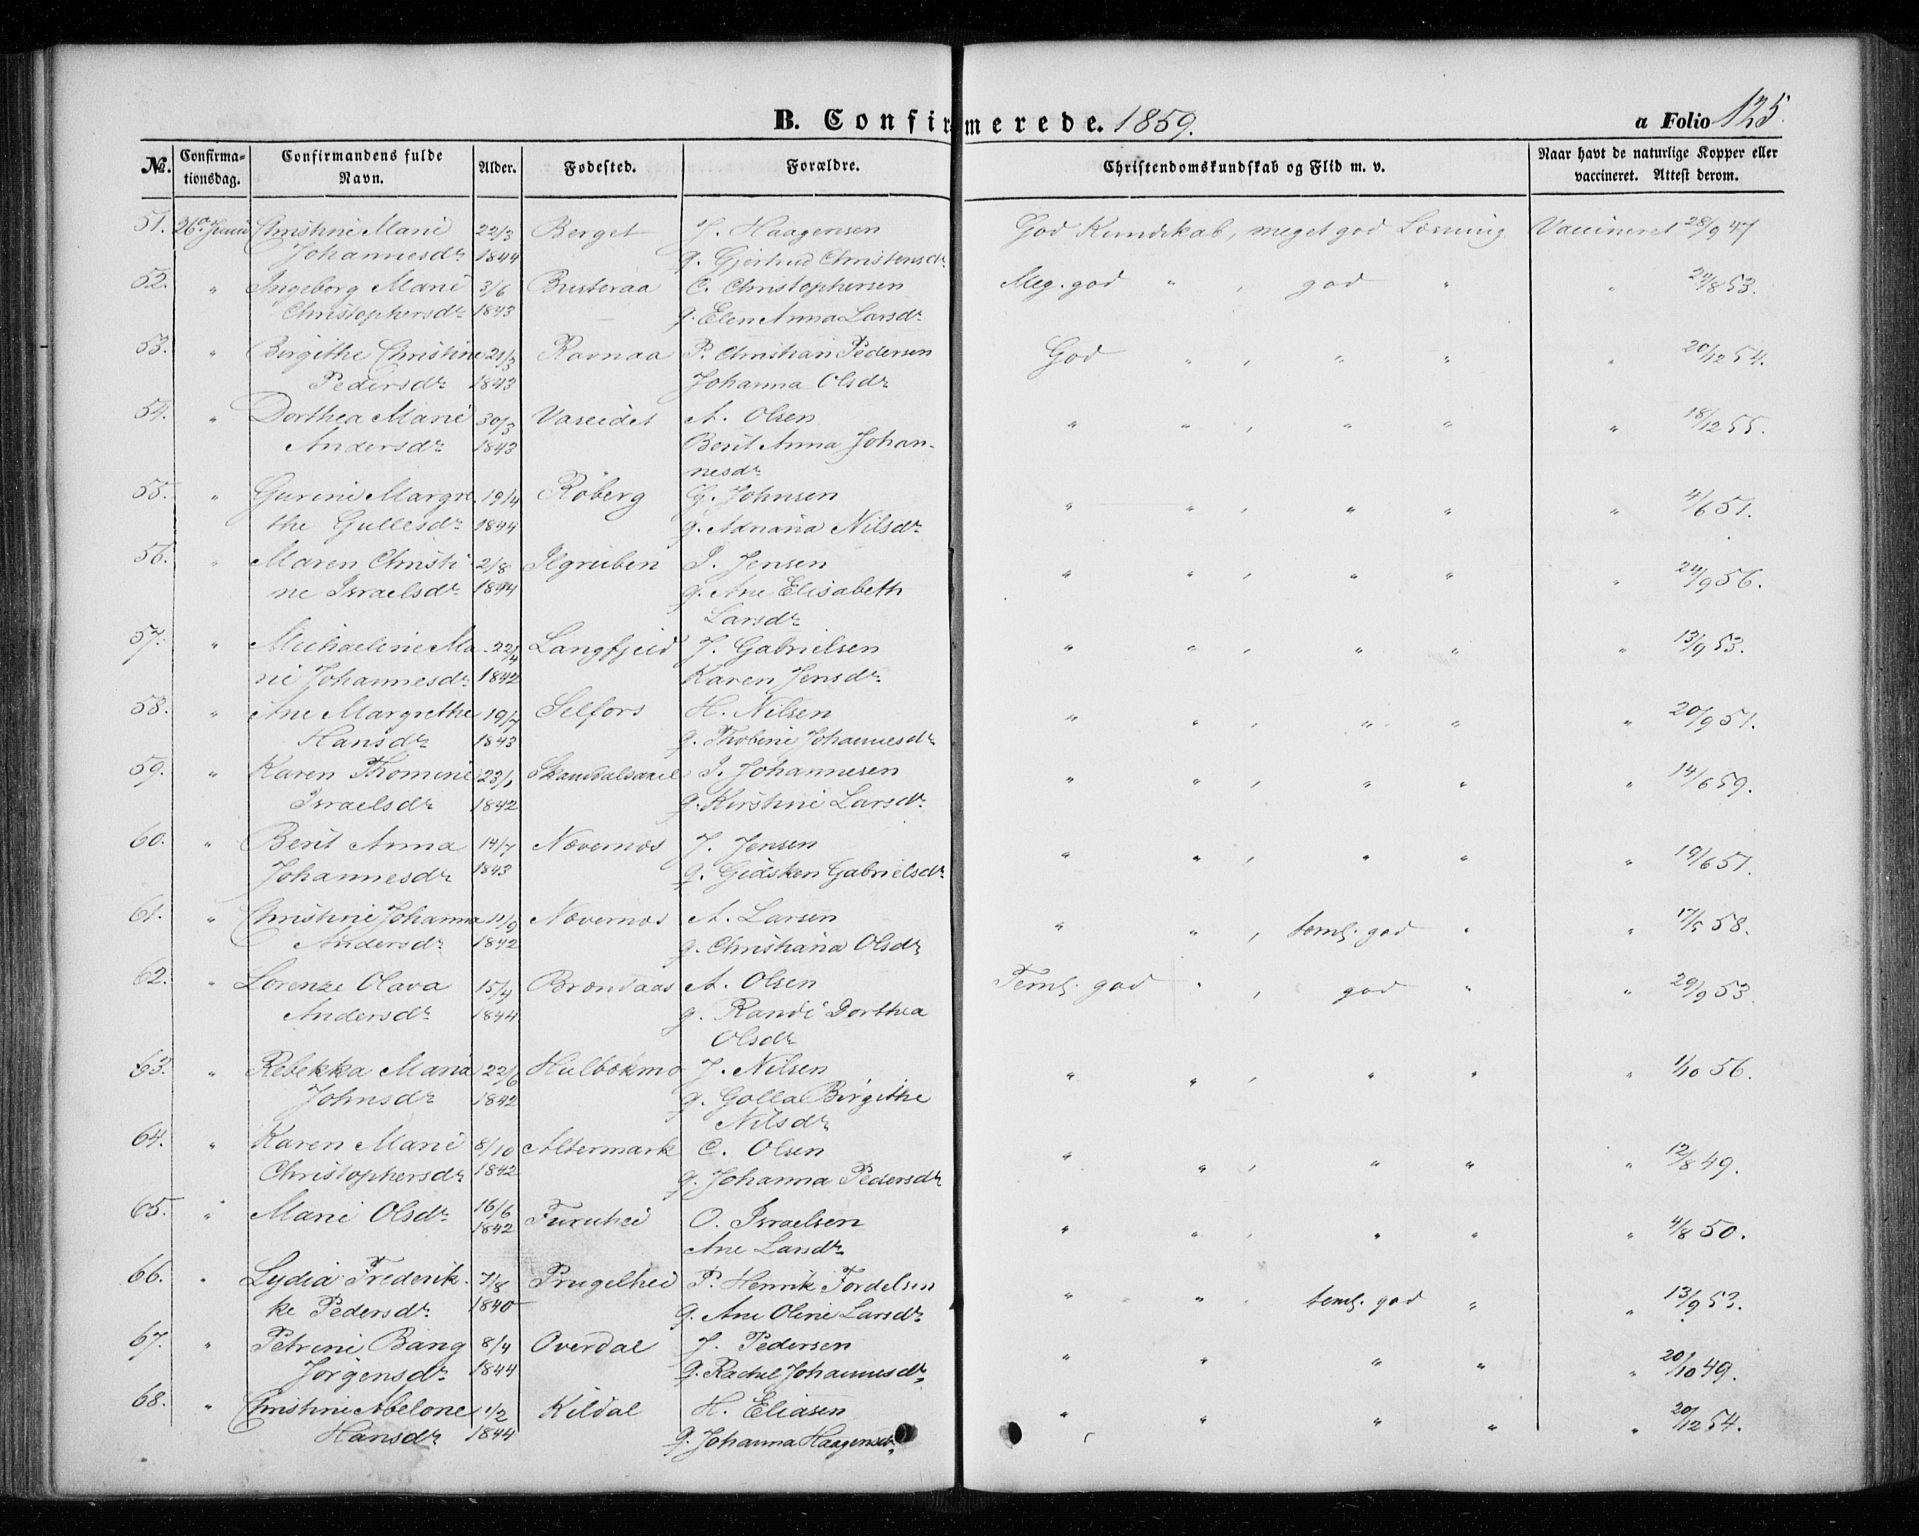 B. Confirmerede. 1859. a Folio 125.
No. Confirmationsdag. Confirmandens fulde Navn. Alder. Fødested. Forældre. Christendomskundskab og Flid m. v. Naar havt de naturlige Kopper eller vaccineret. Attest derom.
51. 26. Juni Christine Marie 22/3 Berget J. Haagensen God Kundskab, meget god Læsning Vaccineret 28/9 47
Johannesdr 1844 g. Gjertrud Christensdr
52. " Ingeborg Marie 3/6 Busteraa C. Christophersen Meg. god " , god " " 24/8 53.
Christophersdr 1843 g. Elen Anna Larsdr
53. " Birgithe Christine 21/3 Ravnaa P. Christian Pedersen God " , " " " 20/12 54.
Pedersdr 1843 Johanna Olsdr
54. " Dorthea Marie 30/3 Vaseidet A. Olsen " " , " " " 18/12 55.
Andersdr 1843 Berit Anna Johan-
nesdr
55. " Gurine Margre 19/4 Röberg G. Johnsen " " , " " " 4/6 51.
the Gullesdr 1844 g. Adriana Nilsdr
56. " Maren Christi 2/8 Ilgruben I. Jensen " " , " " " 24/9 56.
ne Israelsdr 1844 g. Ane Elisabeth
Larsdr
57. " Michaeline Ma 22/4 Langfjeld J. Gabrielsen " " , " " " 13/9 53.
rie Johannesdr 1842 Karen Jensdr
58. " Ane Margrethe 19/7 Selfors H. Nilsen " " , " " " 20/9 51.
Hansdr 1843 g. Tholine Johannesdr
59. " Karen Thomine 23/1 I. Johannesen " " , " " " 14/6 59.
Israelsdr 1842 g. Kirstine Larsdr
60. " Berit Anna 14/7 Nævernæs J. Jensen " " , " " " 19/6 51.
Johannesdr 1843 g. Gidsken Gabrielsdr
61. " Christine Johanna 11/9 Nævernæs A. Larsen " " , temlj. god " " 17/5 58.
Andersdr 1842 g. Christiana Olsdr
62. " Lorenze Olava 15/4 Brændaas A. Olsen Temlj. god " , god " " 29/9 53.
Andersdr 1844 g. Randi Dorthea
Olsdr
63. " Rebekka Maria 22/6 Hulbækmo J. Nilsen " " , " " " 1/10 56.
Johnsdr 1842 g. Golla Birgithe
Nilsdr
64. " Karen Marie 8/10 Altermark C. Olsen " " , " " " 12/8 49.
Christophersdr 1842 g. Johanna Pedersdr
65. " Marie Olsdr 16/6 Furuhei O. Israelsen " " , " " " 4/8 50.
1842 Ane Larsdr
66. " Lydia Frederik 7/8 Prugelhei P. Henrik Fordelsen " " , temlj. god " " 13/9 53.
ke Pedersdr 1840 g. Ane Oline Larsdr
67. " Petrine Bang 8/4 Överdal J. Pedersen " " " " " 20/10 49.
Jörgensdr 1844 g. Rachel Johannesdr
68. " Christine Abelone 1/2 Kildal H. Eliasen " " , " " " 20/12 54.
Hansdr 1844 g. Johanna Haagensdr